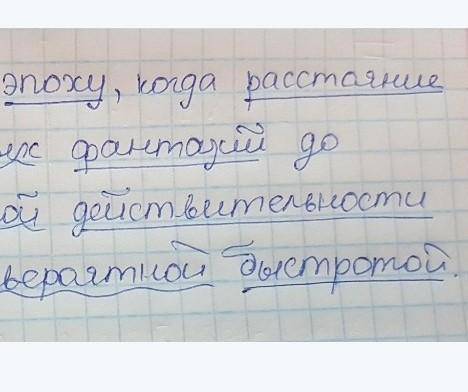 эпоху, когда расстояние
ых фантазий до
ой действительности
вероятной быстротой.